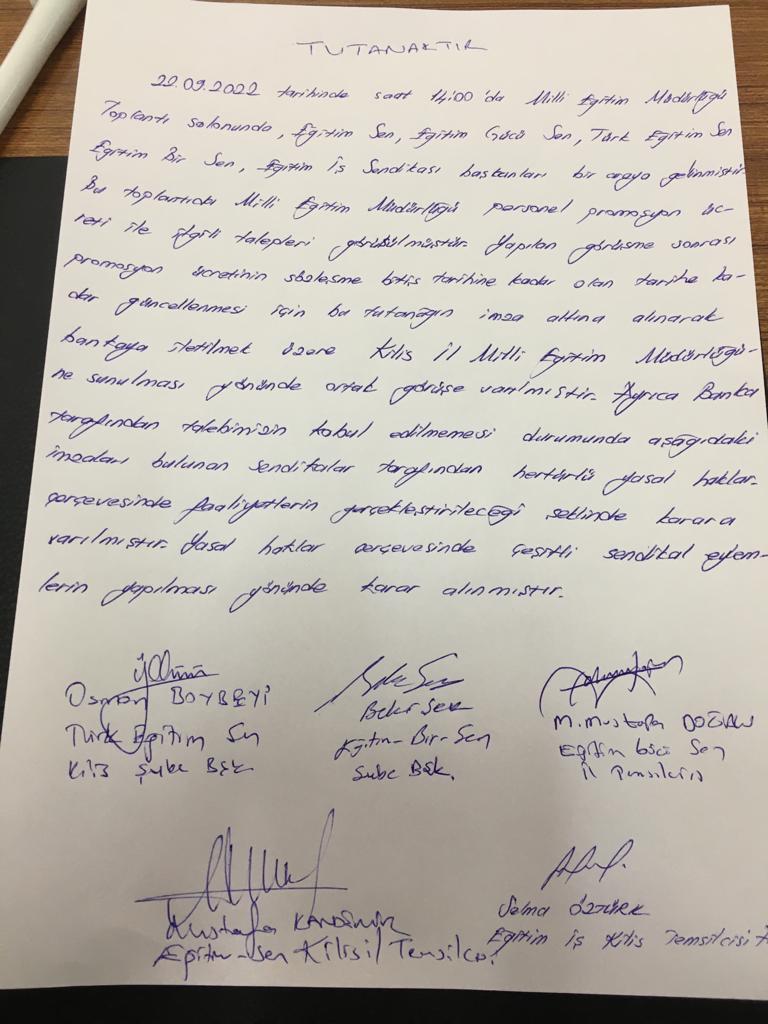 TUTANAKTIR
22.09.2022 tarihinde saat 14:00'da Milli Eğitim Müdürlüğü
Toplantı salonunda, Eğitim Sen, Eğitim Gücü Sen, Türk Eğitim Sen
Eğitim Bir Sen, Eğitim İş Sendikası başkanları bir araya gelinmiştir.
Bu toplantıda Milli Eğitim Müdürlüğü personel promosyon üc-
reti ile ilgili talepleri görüşülmüştür. Yapılan görüşme sonrası
promosyon ücretinin sözleşme bitiş tarihine kadar olan tarihe ka-
dar güncellenmesi için bu tutanağın imza altına alınarak
bankaya iletilmek üzere Kilis İl Milli Eğitim Müdürlüğü-
ne sunulması yönünde ortak görüşe varılmıştır. Ayrıca Banka
tarafından talebimizin kabul edilmemesi durumunda aşağıdaki
imzaları bulunan sendikalar tarafından hertürlü yasal haklar
çerçevesinde faaliyetlerin gerçekleştirileceği şeklinde karara
varılmıştır. Yasal haklar çerçevesinde çeşitli sendikal eylem-
lerin yapılması yönünde karar alınmıştır.
Osman BOYBEYİ
Türk Eğitim Sen
Kilis Şube Bşk.
Bekir Sek
Eğitim-Bir-Sen
Şube Bşk.
M. Mustafa DOĞAN
Eğitim Gücü Sen
İl Temsilcisi
Mustafa KANDEMİR
Eğitim-Sen Kilis İl Temsilcisi
Selma ÖZTÜRK
Eğitim İş Kilis Temsilcisi